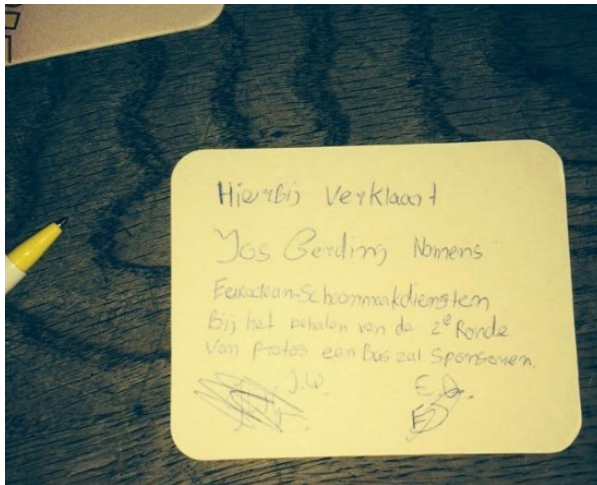 Hierbij Verklaart
Jos Gerding Namens
Euroclean-Schoonmaakdiensten
Bij het behalen van de 2e Ronde
van protos een Bus zal Sponsoren.
J.W. E.D.